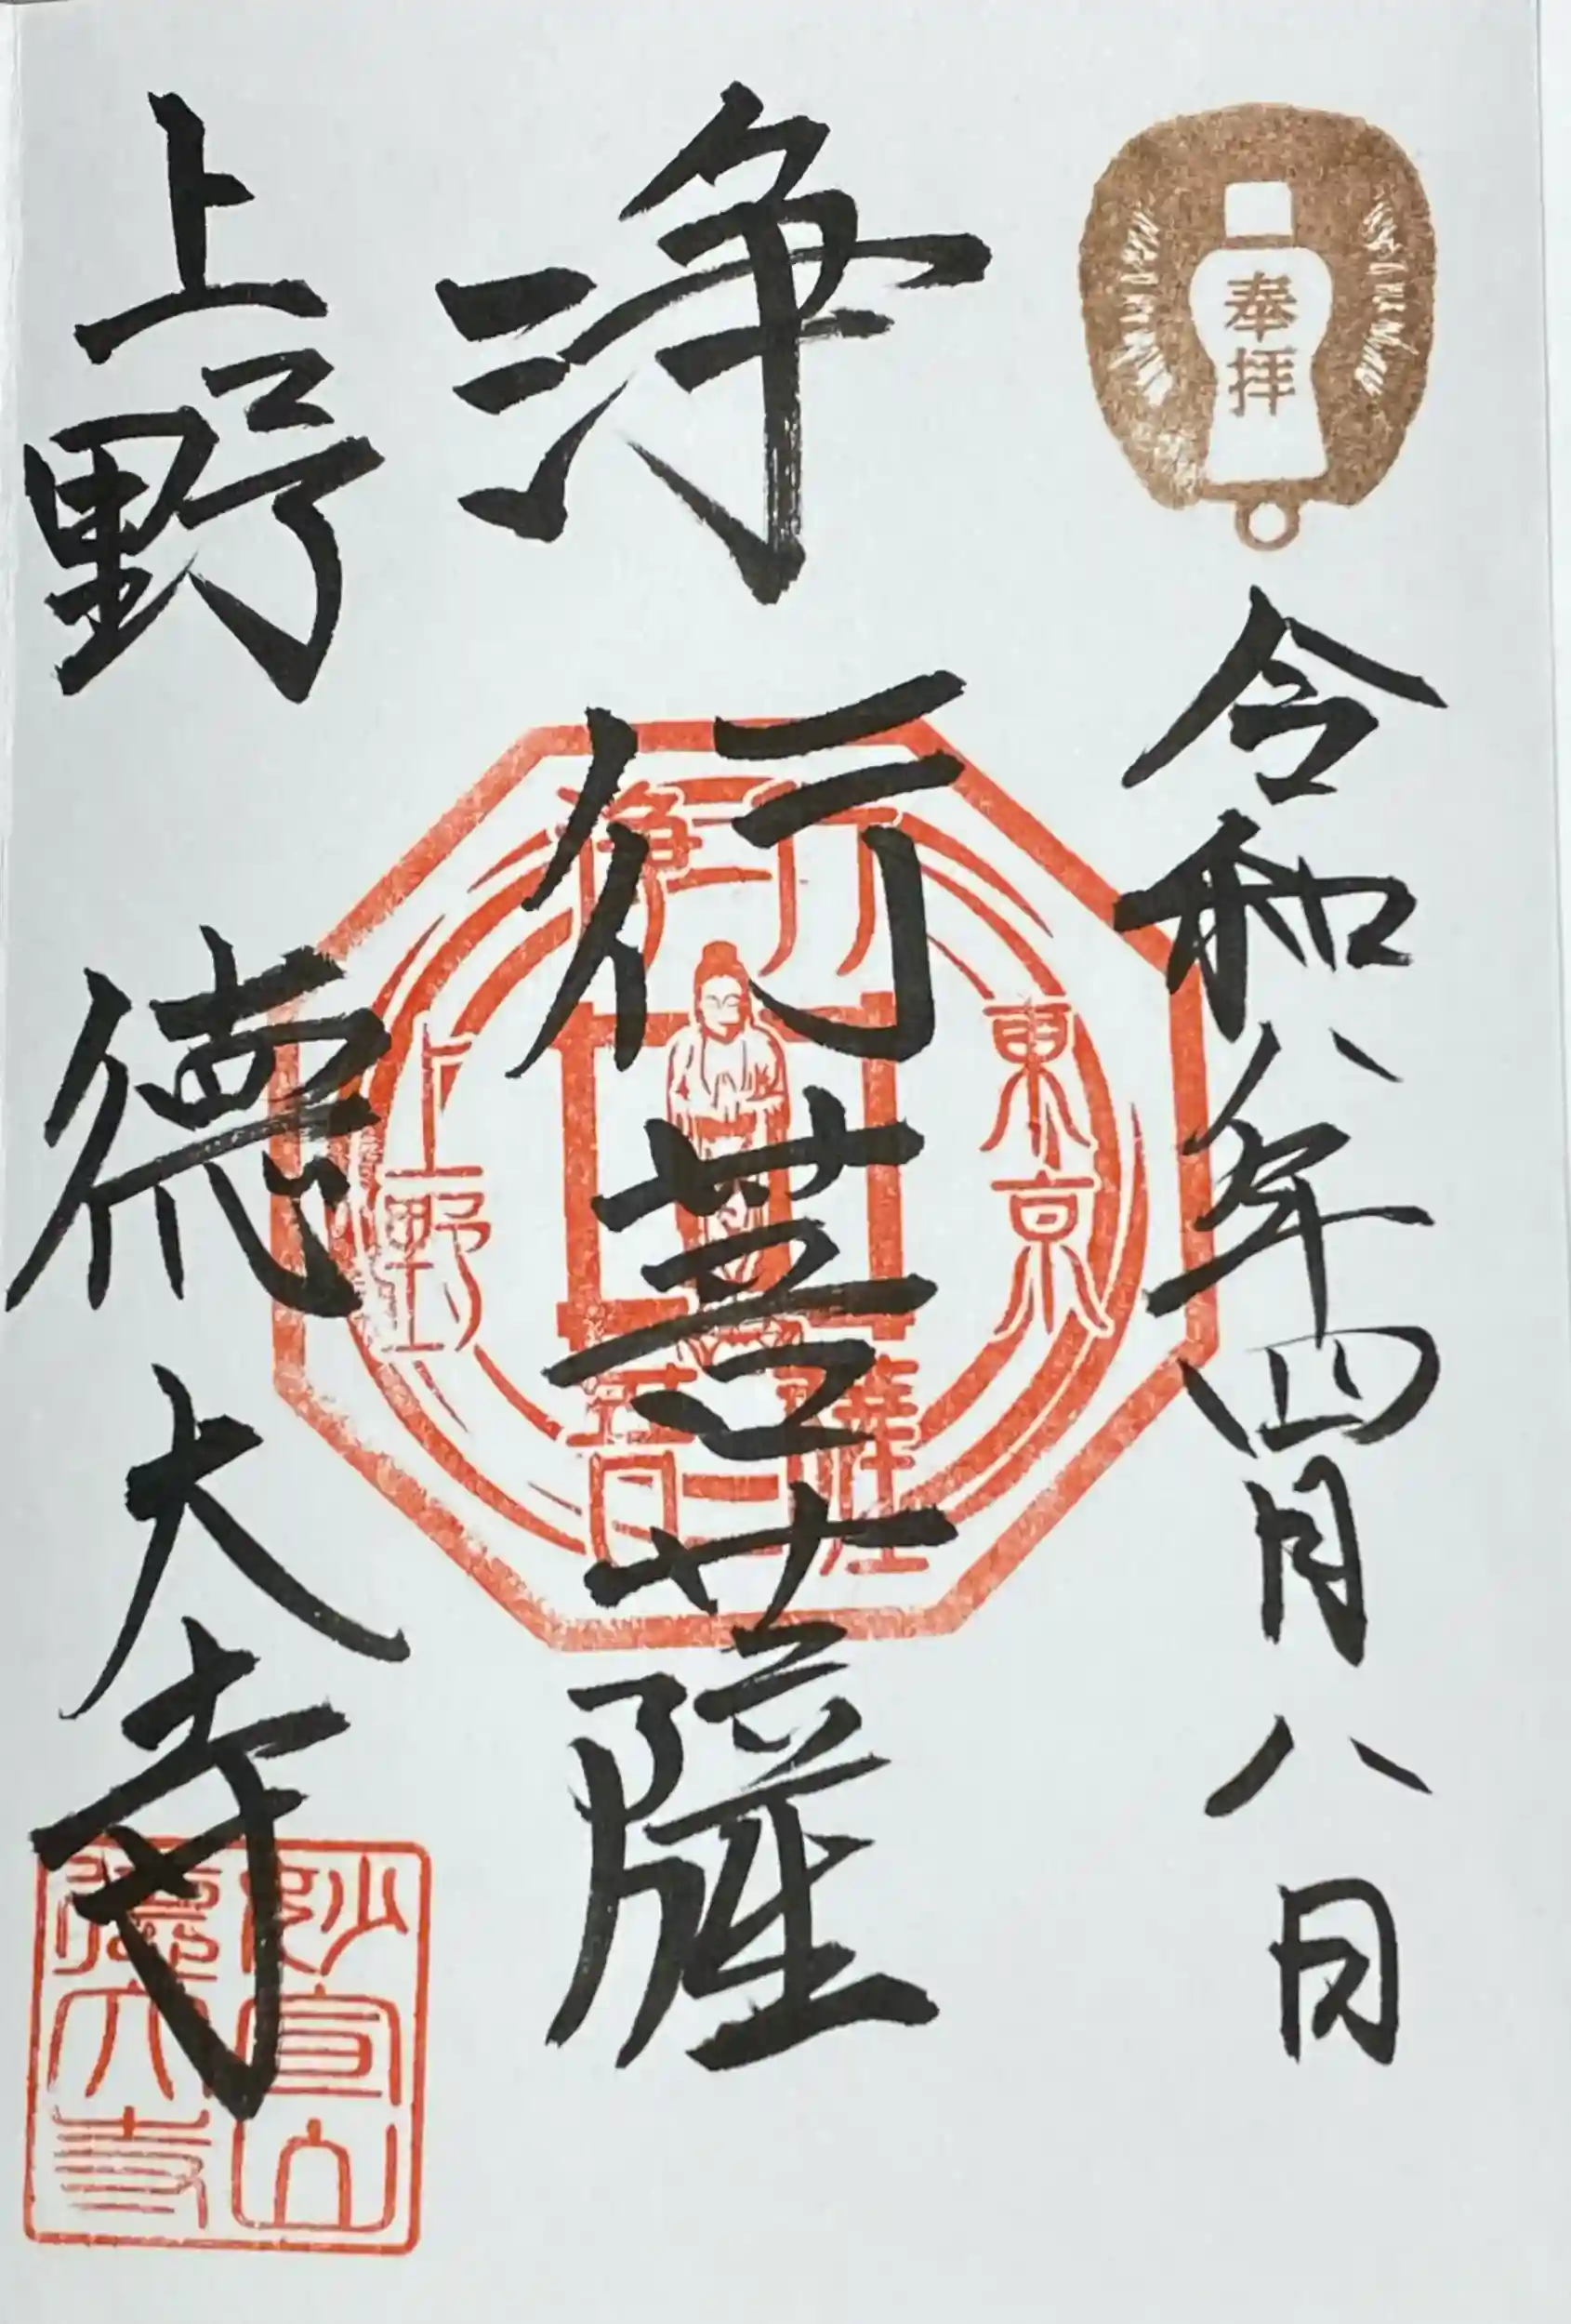 奉拝
令和八年四月八日
浄行菩薩
上野 徳大寺
浄行
東京
上野
菩薩
妙宣山
徳大寺